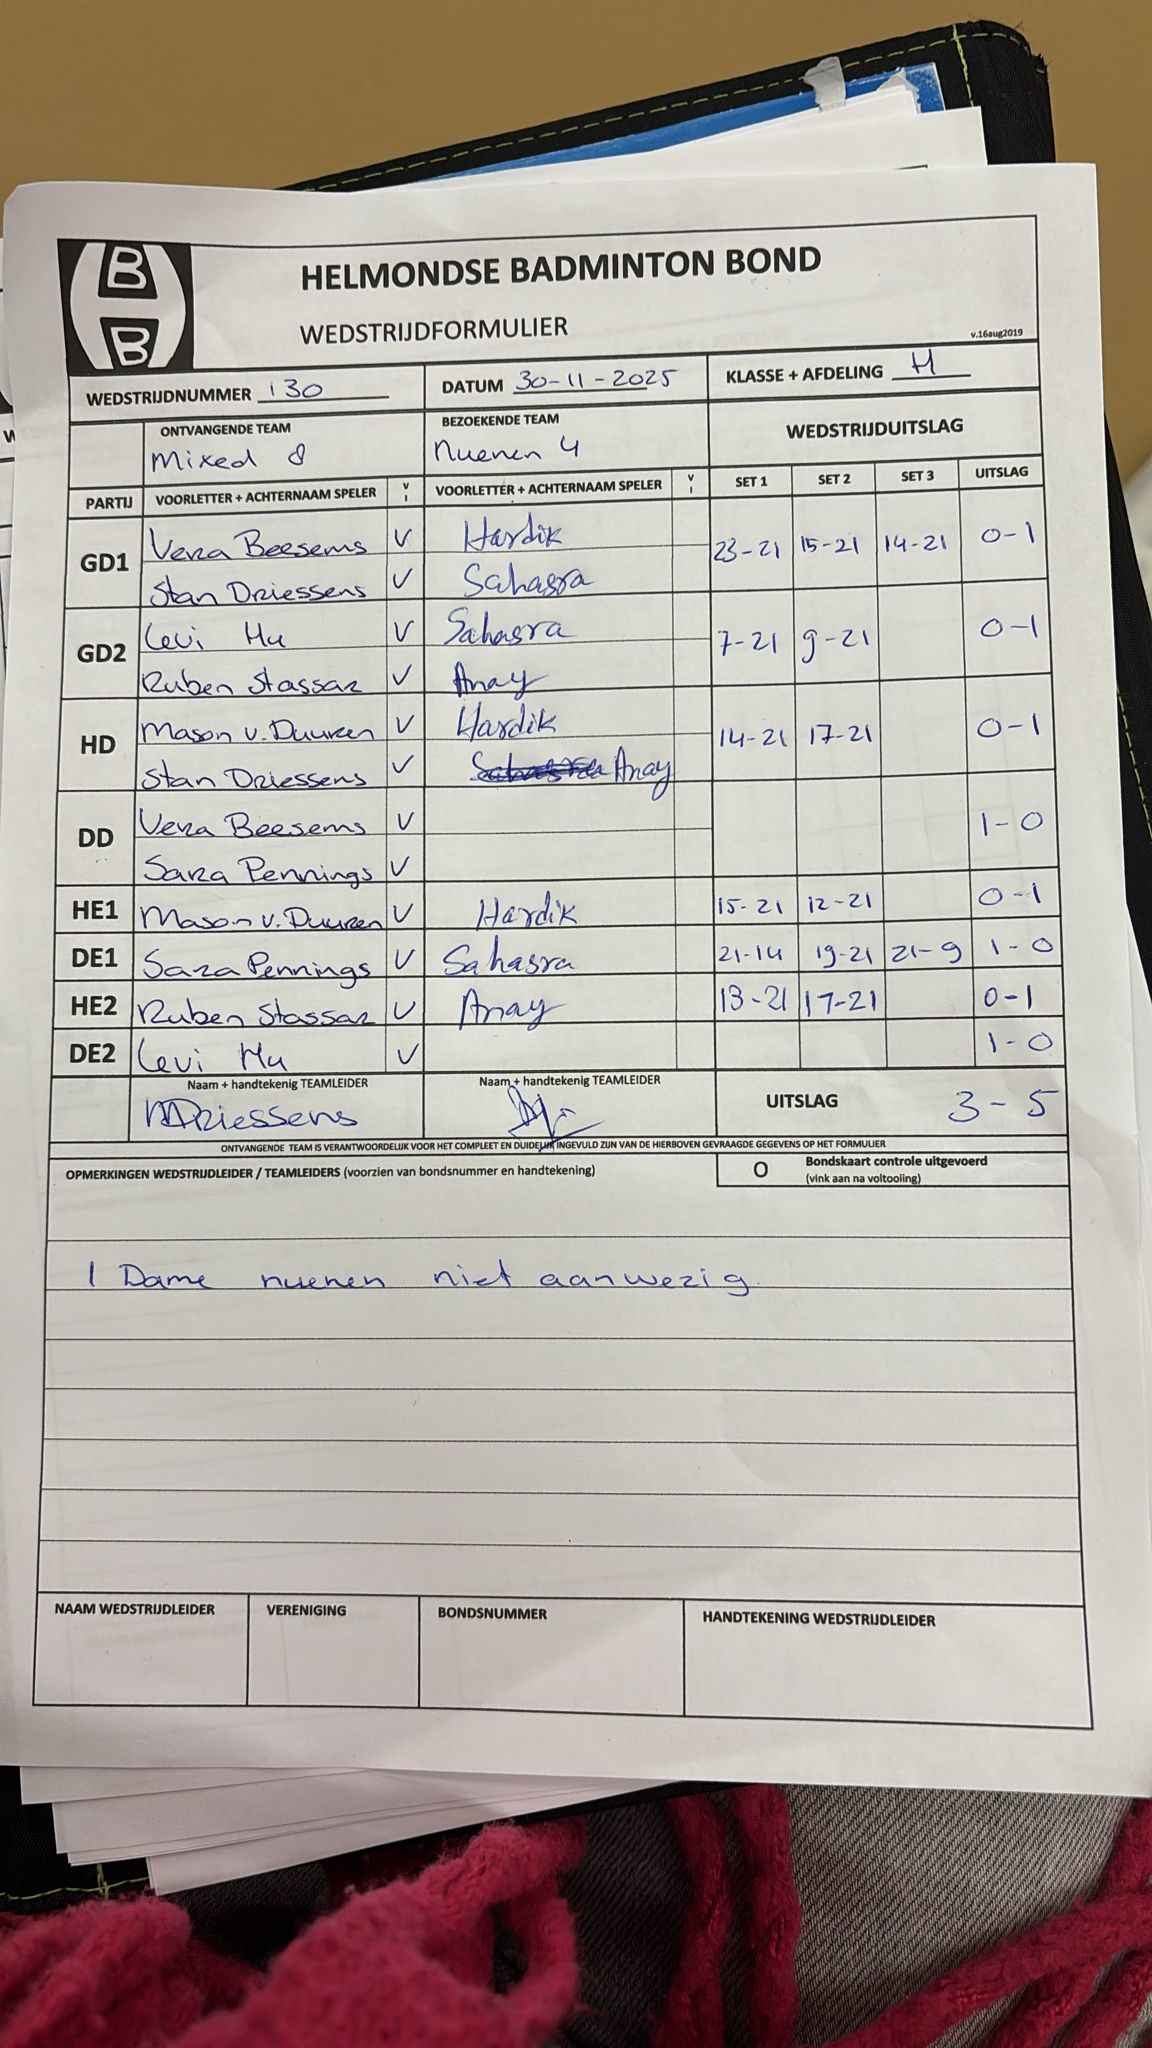 HELMONDSE BADMINTON BOND
WEDSTRIJDFORMULIER
v.16aug2019
WEDSTRIJDNUMMER 130 DATUM 30-11-2025 KLASSE + AFDELING H
ONTVANGENDE TEAM BEZOEKENDE TEAM WEDSTRIJDUITSLAG
Mixed 8 Nuenen 4
PARTIJ VOORLETTER + ACHTERNAAM SPELER V I VOORLETTER + ACHTERNAAM SPELER V I SET 1 SET 2 SET 3 UITSLAG
GD1 Vera Beesems V Hardik 23-21 15-21 14-21 0-1
Stan Driessens V Sahasra
GD2 Levi Hu V Sahasra 7-21 9-21 0-1
Ruben Stassar V Anay
HD Mason v. Duuren V Hardik 14-21 17-21 0-1
Stan Driessens V Anay
DD Vera Beesems V 1-0
Sara Pennings V
HE1 Mason v. Duuren V Hardik 15-21 12-21 0-1
DE1 Sara Pennings V Sahasra 21-14 19-21 21-9 1-0
HE2 Ruben Stassar V Anay 13-21 17-21 0-1
DE2 Levi Hu V 1-0
Naam + handtekenig TEAMLEIDER Naam + handtekenig TEAMLEIDER UITSLAG 3-5
MDriessens
ONTVANGENDE TEAM IS VERANTWOORDELIJK VOOR HET COMPLEET EN DUIDELIJK INGEVULD ZIJN VAN DE HIERBOVEN GEVRAAGDE GEGEVENS OP HET FORMULIER
OPMERKINGEN WEDSTRIJDLEIDER / TEAMLEIDERS (voorzien van bondsnummer en handtekening) O Bondskaart controle uitgevoerd
(vink aan na voltooiing)
1 Dame nuenen niet aanwezig
NAAM WEDSTRIJDLEIDER VERENIGING BONDSNUMMER HANDTEKENING WEDSTRIJDLEIDER